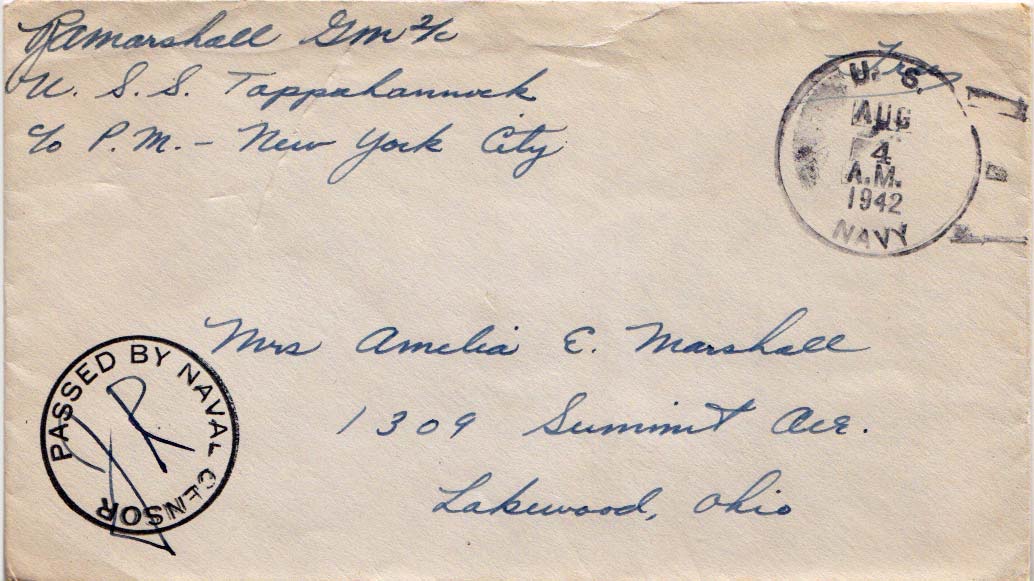 RAMarshall GM 2/c
U. S. S. Tappahannock
c/o P.M. - New York City
Free
U. S.
AUG
4
A.M.
1942
NAVY
Mrs Amelia E. Marshall
1309 Summit Ave.
Lakewood, Ohio
PASSED BY NAVAL CENSOR